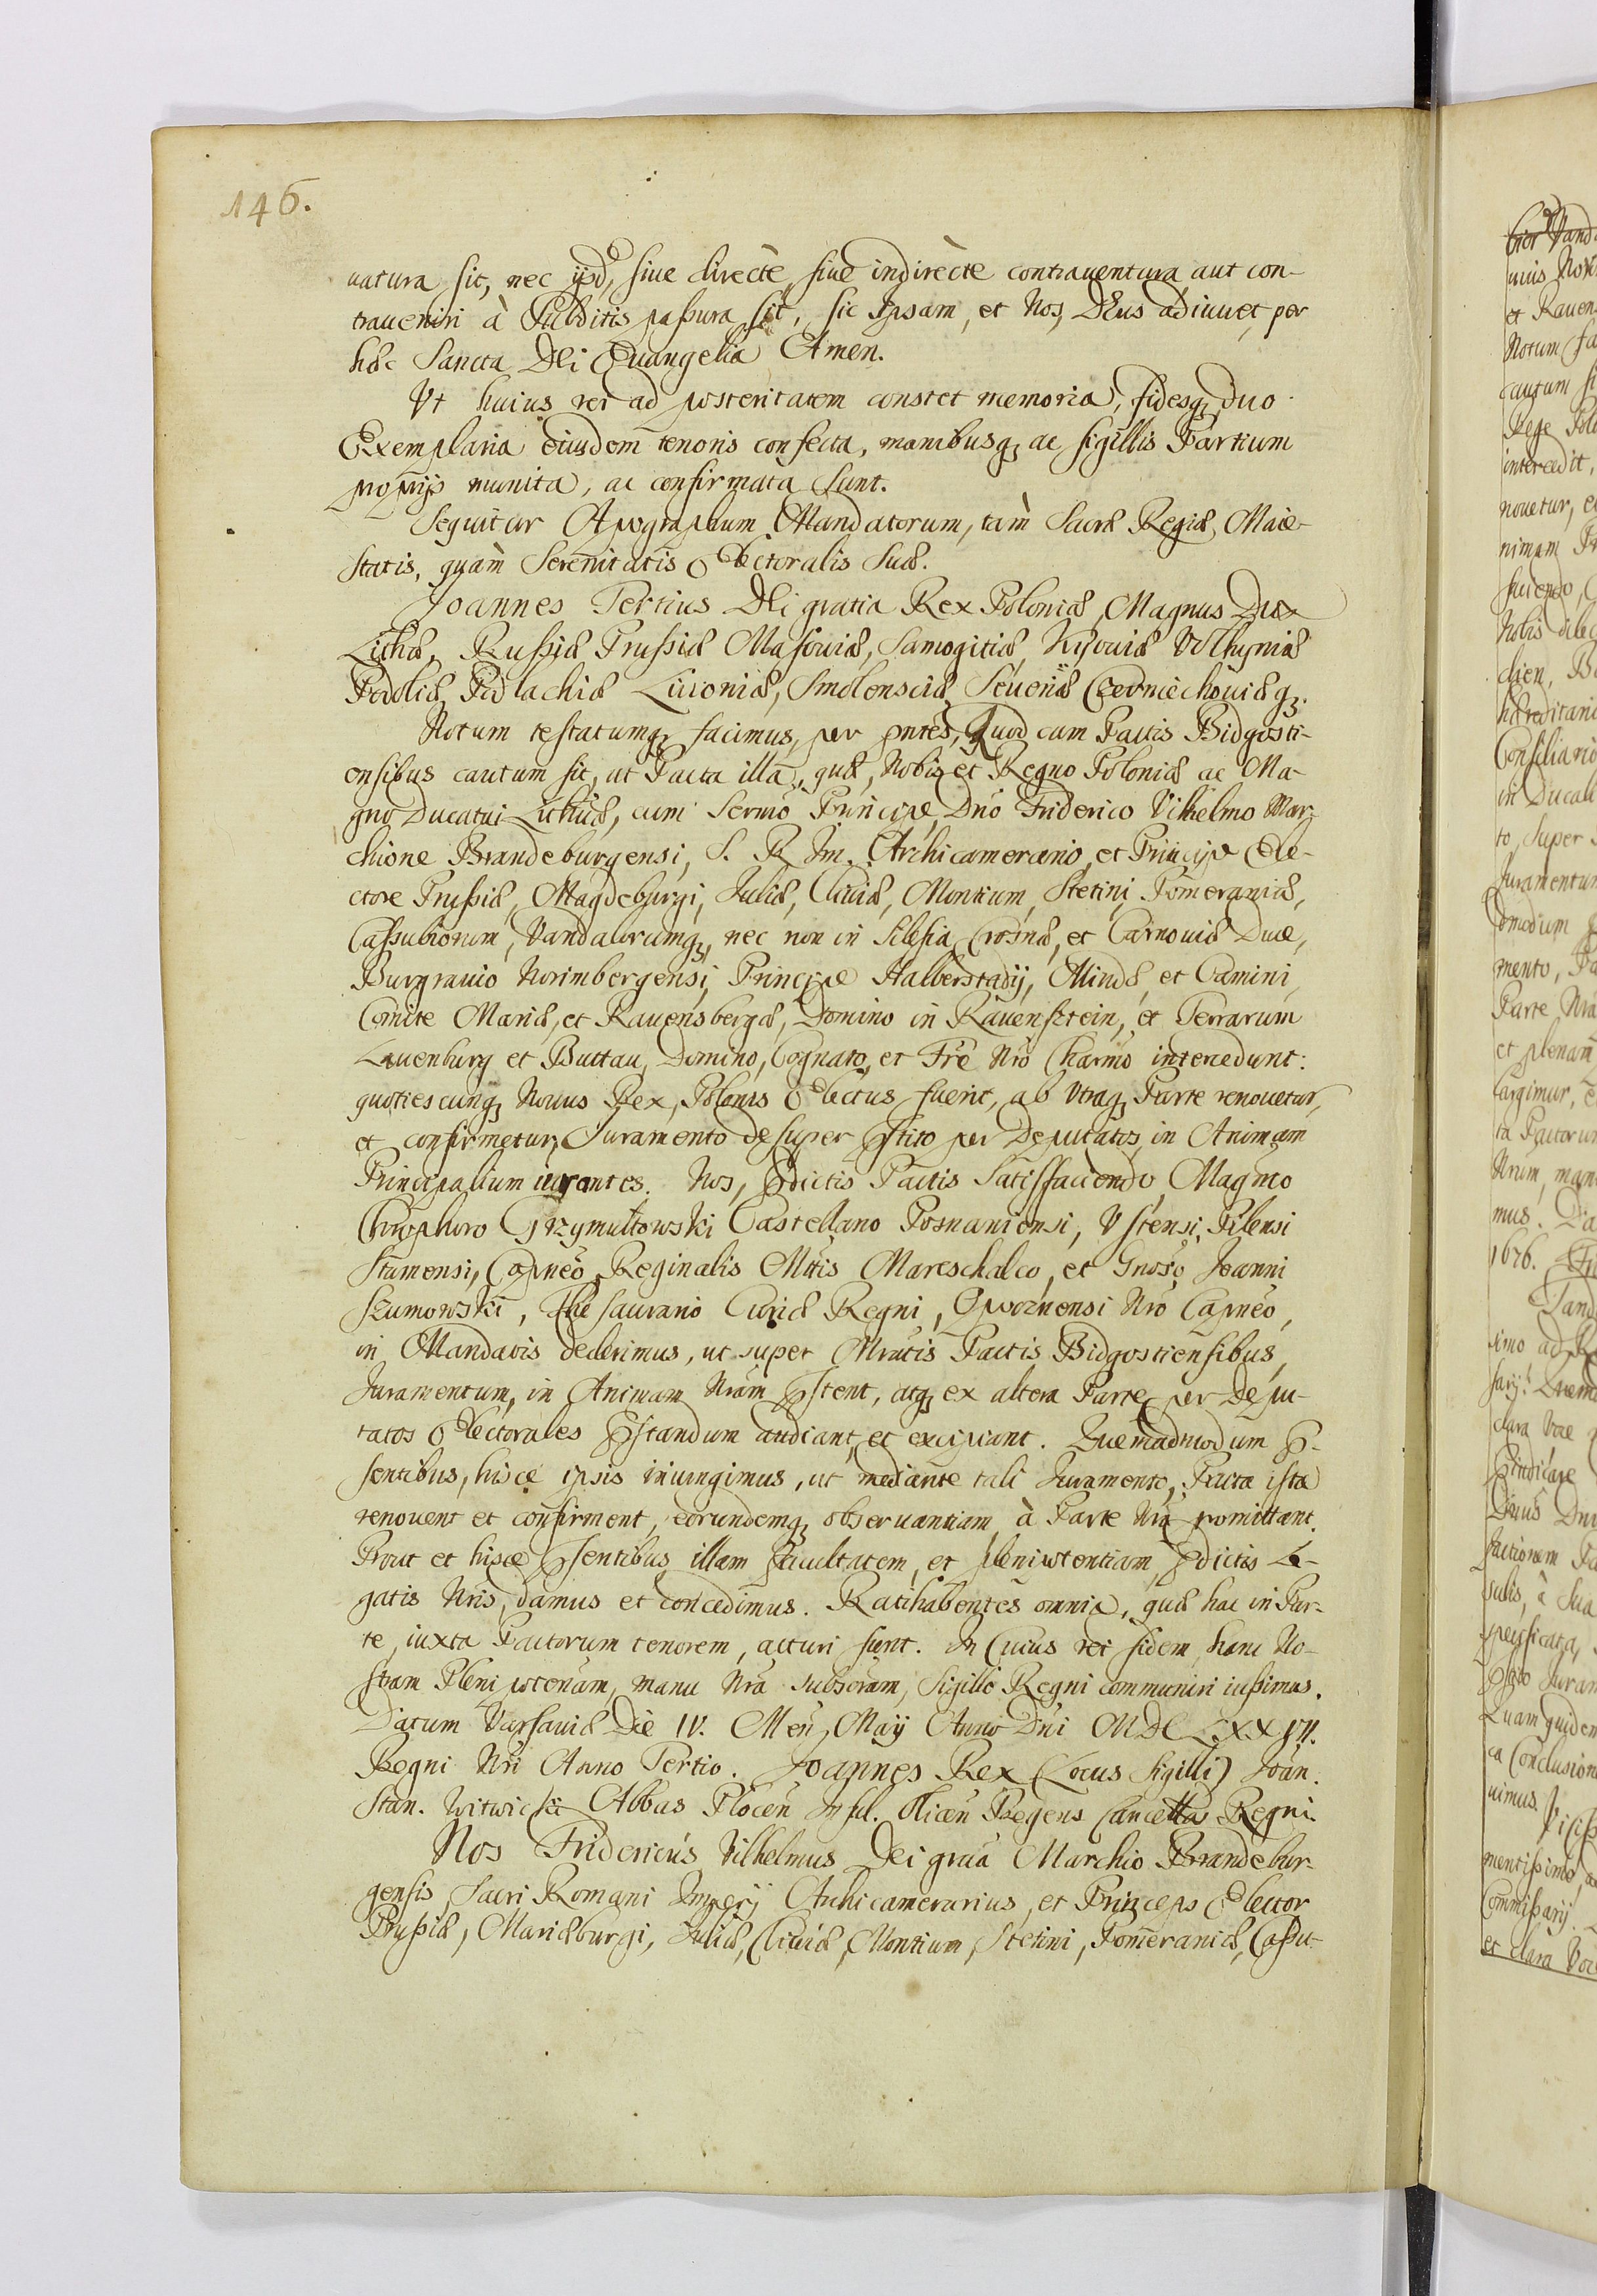 146.
uatura sit, nec ipsa, siue directè siue indirècte contrauentura, aut con-
traueniri à Subditis passura sit, sic Ipsam, et Nos, DEus adiuuet, per
hæc Sancta DEi Euangelia Amen.
Vt huius rei ad posteritatem constet memoria, fidesq, duo
Exemplaria eiusdem tenoris confecta, manibusq, ac sigillis Partium
proprijs munita, ac confirmata sunt.
Sequitur Apographum Mandatorum, tàm Sacræ Regiæ, Maie-
statis, quàm Serenitatis Electoralis Suæ.
Joannes Tertius DEi gratia Rex Poloniæ, Magnus Dux
Lithæ, Russiæ Prussiæ Masouiæ, Samogitiæ, Kijouiæ Volhyniæ
Podoliæ, Podlachiæ Liuoniæ, Smolensciæ, Seueriæ Czerniechouiæq.
Notum testatumq, facimus, per pntes, Quod cum Pactis Bidgosti-
ensibus cautum sit, ut Pacta illa, quæ, Nobis et Regno Poloniæ ac Ma-
gno Ducatui Lithuæ, cum Sermo Principe, Dno Friderico Vilhelmo Mar-
chione Brandeburgensi, S. R Im. Archicamerario, et Principe Ele-
ctore Prussiæ, Magdeburgi, Juliæ, Cliuiæ, Montium, Stetini, Pomeraniæ,
Cassubiorum, Vandalorumq, nec non in Silesia, Crosnæ, et Carnouiæ Duce,
Burgrauio Norimbergensi, Principe Halberstadij, Mindæ, et Camini,
Comite Mariæ, et Rauensbergæ, Domino in Rauensztein, et Terrarum
Lauenburg et Buttau, Domino, Cognato, et Fre Nro Charmo intercedunt:
quotiescunq, Nouus Rex, Polonis Electus fuerit, ab Vtraq, Parte renouetur,
et confirmetur, Juramento desuper pstito per Deputatos, in Animam
Principalium iurantes. Nos, pdictis Pactis Satisfaciendo, Magnco
Chrophoro Grzymułtowski Castellano Posnaniensi, Vstensi, Pilensi
Stumensi, Capneo, Reginalis Mttis Mareschalco, et Gnoso, Joanni
Szumowski, Thesaurario Curiæ Regni, Opocznensi Nro Capneo,
in Mandatis dederimus, ut super Mratis Pactis Bidgostiensibus,
Juramentum, in Animam Nram pstent, atq, ex altera Parte, per Depu-
tatos Electorales pstandum audiant, et excipiant. Quemadmodum p-
sentibus, hisce ipsis iniungimus, ut mediante tali Juramento, Pacta ista
renouent et confirment, eorundemq, obseruantiam, à Parte Nra promittant.
Prout et hisce psentibus, illam facultatem, et plenipotentiam, pdictis Le-
gatis Nris, damus et concedimus. Ratihabentes omnia, quæ hac in Par-
te, iuxta Pactorum tenorem, acturi sunt. In Cuius rei fidem, hanc No-
stram Plenipotenam, manu Nra subscram, Sigillo Regni communiri iussimus.
Datum Varsauiæ Die IV. Men, Maij Anno Dni MDCLXXVII.
Regni Nri Anno Tertio. Joannes Rex (Locus Sigilli) Joan.
Stan. Witwicki Abbas Plocen Regens Cancellæ Regni.
Nos Fridericus Vilhelmus Dei graa Marchio Brandebur-
gensis, Sacri Romani Imperij Archicamerarius, et Princeps Elector
Prussiæ, Mariæburgi, Juliæ, Cliuiæ, Montium, Stetini, Pomeraniæ, Cassu-